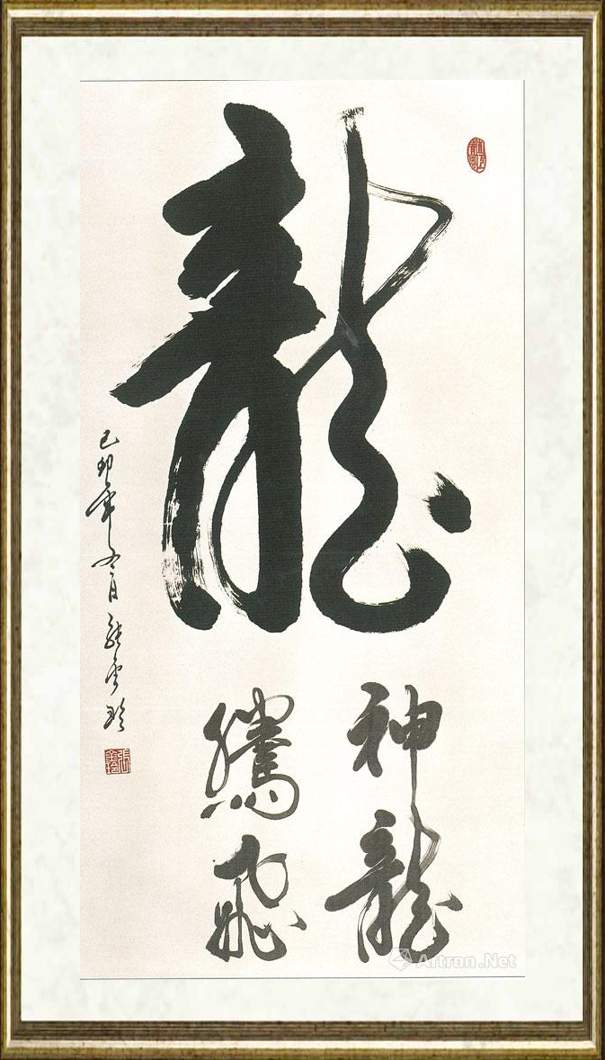 龍
神龍
騰飛
己卯年
Artron.Net